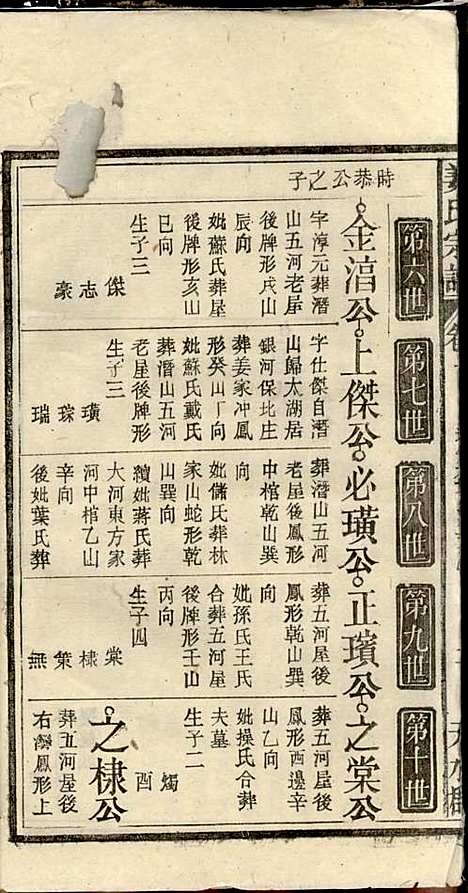 姜氏宗譜
卷一
第六世
第七世
第八世
第九世
第十世
時恭公之子
金湻公
上傑公
必璜公
正璸公
之棠公
字淳元葬潛
山五河老屋
後牌形戌山
辰向
妣蘇氏葬屋
後牌形亥山
巳向
生子三
傑
志
豪
字仕傑自潛
山歸太湖居
銀河保北庄
葬姜家冲鳳
形癸山丁向
妣蘇氏戴氏
葬潛山五河
老屋後牌形
生子三
璜
琮
瑞
葬潛山五河
老屋後鳳形
中棺乾山巽
向
妣儲氏葬林
家山蛇形乾
山巽向
續妣蔣氏葬
大河東方家
河中棺乙山
辛向
後妣葉氏葬
葬五河屋後
鳳形乾山巽
向
妣孫氏王氏
合葬五河屋
後牌形壬山
丙向
生子四
棠
棣
策
無
葬五河屋後
鳳形西邊辛
山乙向
妣操氏合葬
夫墓
生子二
燭
酉
之棣公
葬五河屋後
右彎鳳形上